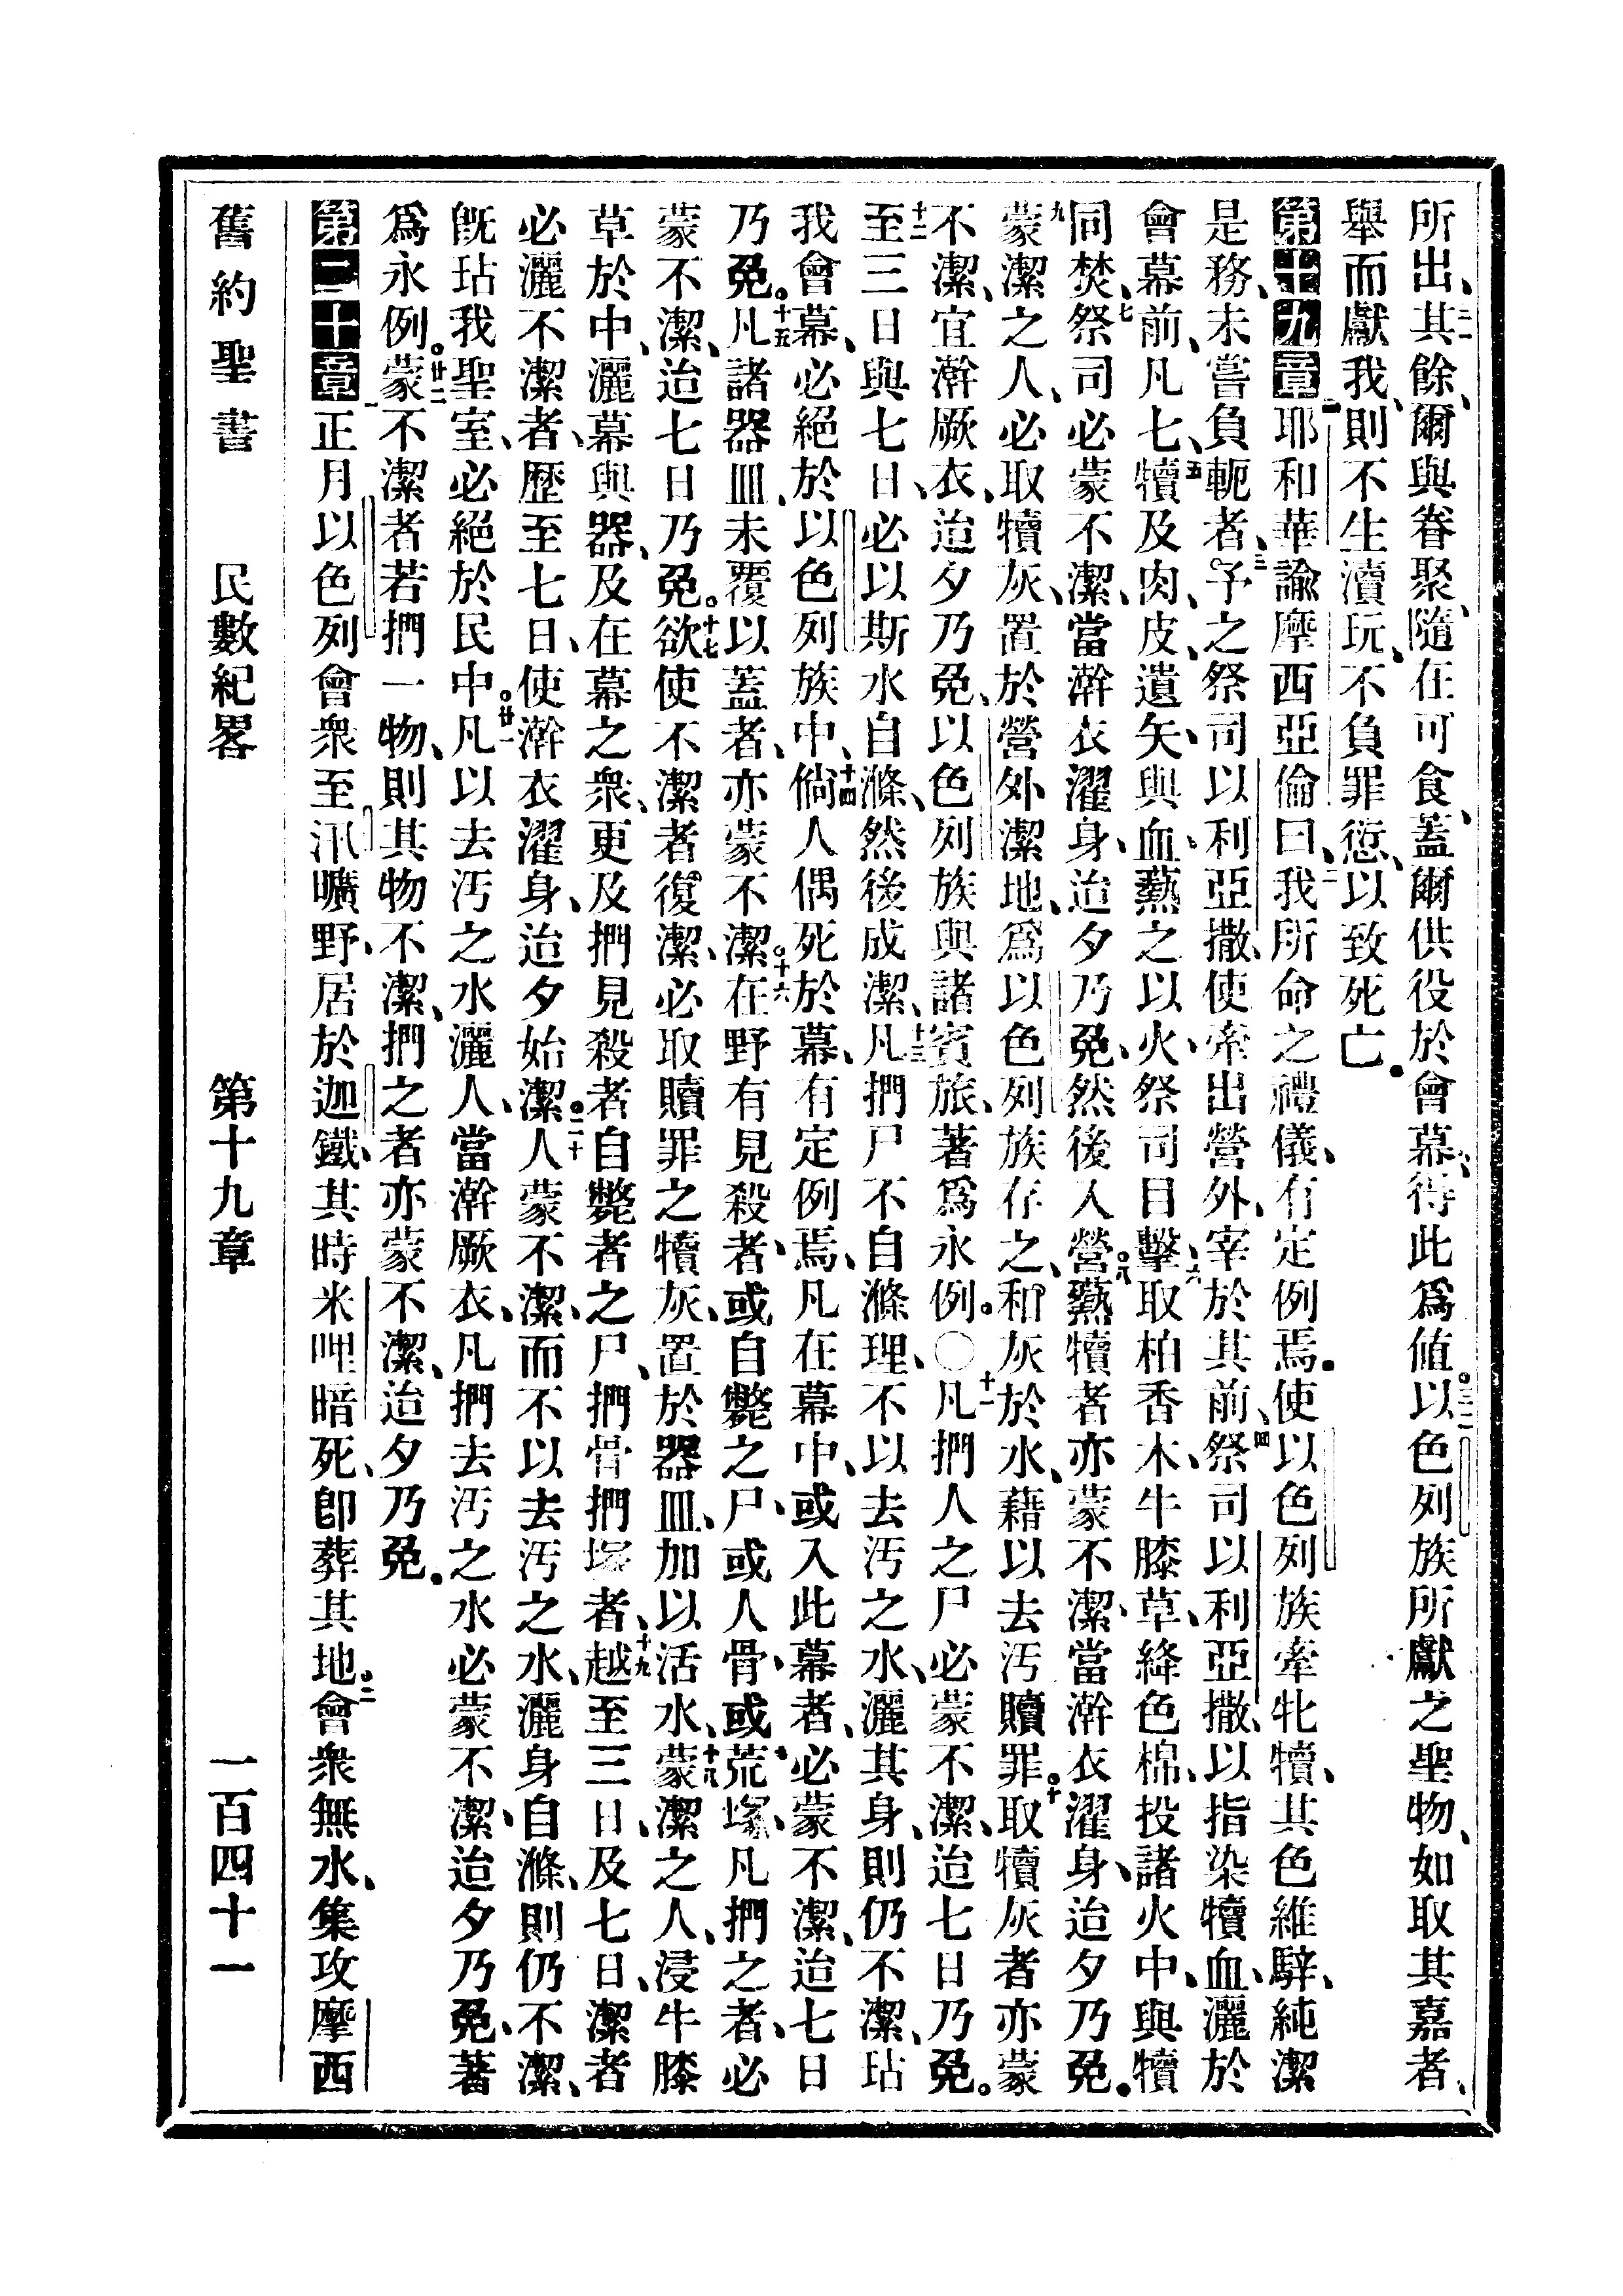 所出、三一其餘、爾與眷聚、隨在可食、蓋爾供役於會幕、得此爲値。三二以色列族所獻之聖物、如取其嘉者、
舉而獻我、則不生瀆玩、不負罪愆、以致死亡。
第十九章一耶和華諭摩西亞倫曰、二我所命之禮儀、有定例焉。使以色列族牽牝犢、其色維騂、純潔
是務、未嘗負軛者、三予之祭司以利亞撒、使牽出營外、宰於其前、四祭司以利亞撒、以指染犢血、灑於
會幕前、凡七、五犢及肉、皮、遺矢、與血、爇之以火、祭司目擊、六取柏香木、牛膝草、絳色棉、投諸火中、與犢
同焚、七祭司必蒙不潔、當澣衣濯身、迨夕乃免、然後入營。八爇犢者亦蒙不潔、當澣衣濯身、迨夕乃免。
九蒙潔之人、必取犢灰、置於營外潔地、爲以色列族存之、和灰於水、藉以去汚贖罪。十取犢灰者亦蒙
不潔、宜澣厥衣、迨夕乃免、以色列族與諸賓旅、著爲永例。〇十一凡捫人之尸、必蒙不潔、迨七日乃免。
十二至三日與七日、必以斯水自滌、然後成潔、十三凡捫尸不自滌理、不以去汚之水、灑其身、則仍不潔、玷
我會幕、必絕於以色列族中、十四倘人偶死於幕、有定例焉、凡在幕中、或入此幕者、必蒙不潔、迨七日
乃免。十五凡諸器皿、未覆以蓋者、亦蒙不潔。十六在野有見殺者、或自斃之尸、或人骨、或荒塚、凡捫之者、必
蒙不潔、迨七日乃免。十七欲使不潔者復潔、必取贖罪之犢灰、置於器皿、加以活水、十八蒙潔之人、浸牛膝
草於中、灑幕與器、及在幕之衆、更及捫見殺者自斃者之尸、捫骨捫塚者、十九越至三日、及七日、潔者
必灑不潔者、歷至七日、使澣衣濯身、迨夕始潔。二十人蒙不潔、而不以去汚之水、灑身自滌、則仍不潔、
旣玷我聖室、必絕於民中。廿一凡以去汚之水灑人、當澣厥衣、凡捫去汚之水、必蒙不潔、迨夕乃免、著
爲永例。廿二蒙不潔者、若捫一物、則其物不潔、捫之者亦蒙不潔、迨夕乃免。
第二十章一正月以色列會衆至汛曠野、居於迦鐵、其時米哩暗死、卽葬其地。二會衆無水、集攻摩西
舊約聖書　民數紀畧　第十九章　一百四十一